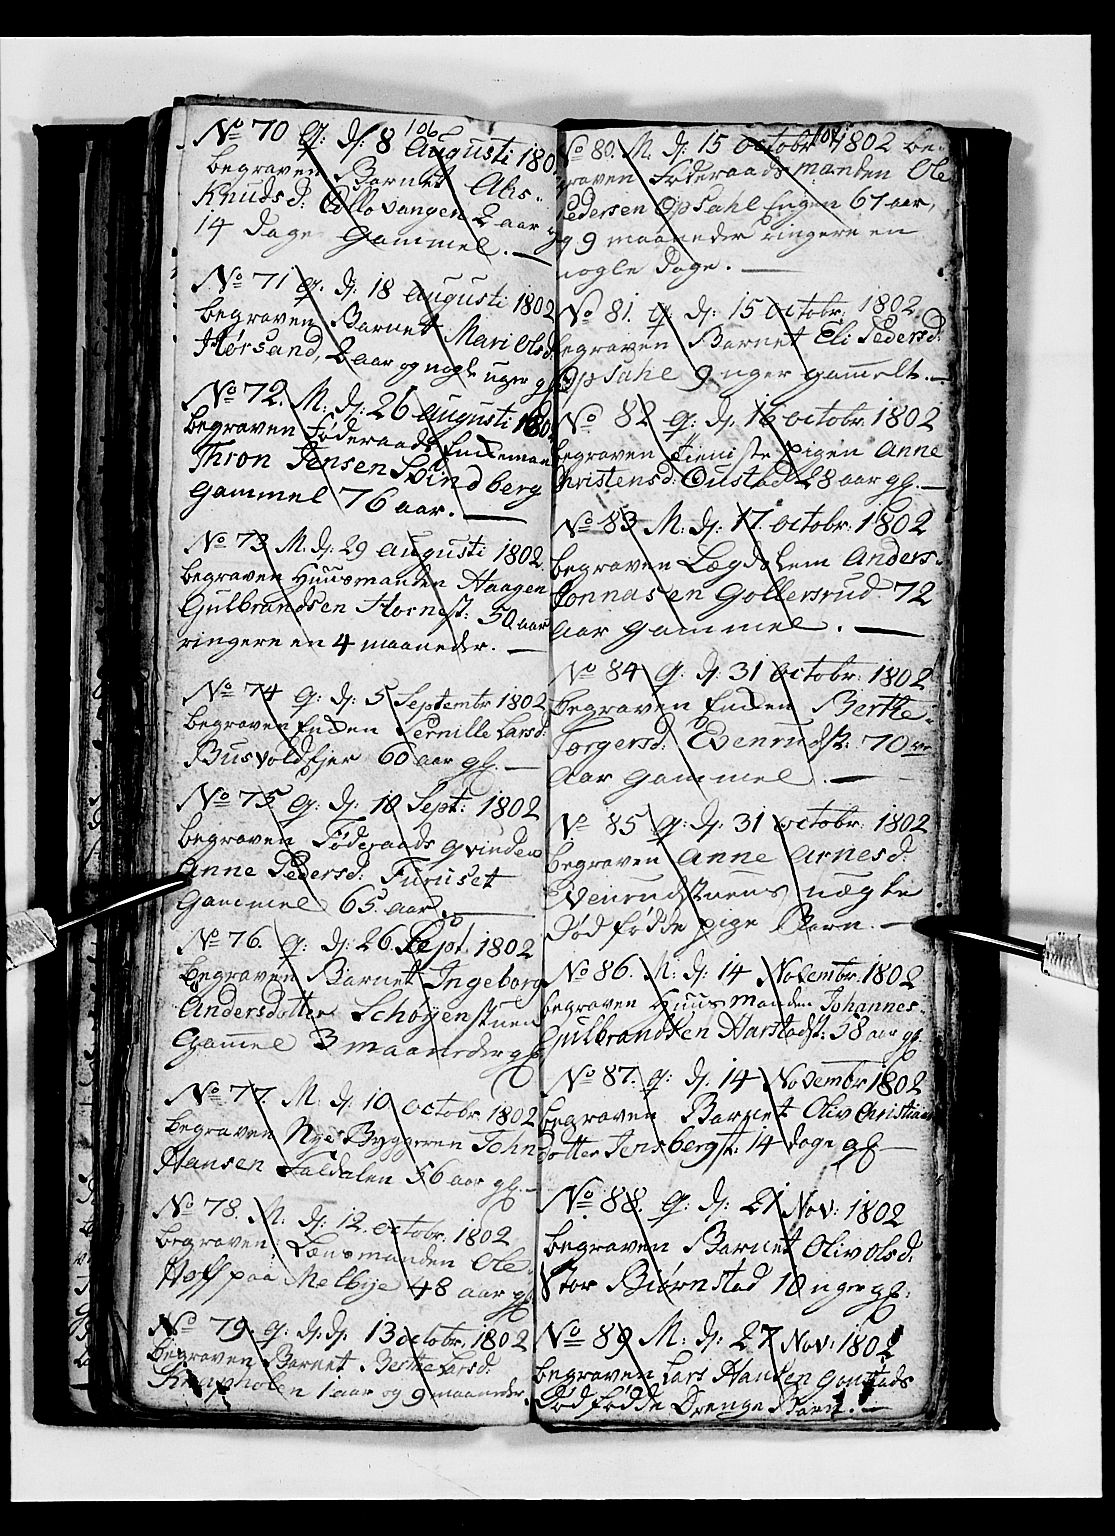 106
No 70 Q: dj: 8 Augusti 180
begraven Barnet Ahs-
Knudsd: Ollovangen 2 aar
14 dage gammel. —
No 71 Q. dj: 18 augusti 1802
begraven Barnet Mari Olsd:
Hørsand, 2 aar og nogle uger gl.
No 72. M. dj: 26 augusti 180
begraven Føderaads Enckeman
Thron Jensen Svindberg
gammel 76 aar. —
No 73 M. dj: 29 augusti 1802.
begraven Huusmanden Haagen
Gulbrandsen Hornest: 50 aar
ringere en 4 maaneder. —
No 74 Q: dj: 5 Septembr 1802
begraven Enken Pernille Larsd:
Busvoldejer 60 aar gl. —
No 75 Q: dj. 10 Sept: 1802
begraven Føderaads qvinden
Anne Pedersd: Furuset
gammel 65. aar. —
No 76. Q: dj: 26 Sept. 1802
begraven Barnet Ingeborg
Andersdotter Schøyenstuen
gammel 3 maaneder gl.
No 77 M. dj: 10 octobr. 1802
begraven Nye Byggeren John
Hansen Faldalen 56 aar gl. —
No 78. M. dj: 12. octobr. 1802
begraven: Lænsmanden Ole
Hoff paa Melbye 48 aar gl.
No 79 Q: dj. 13 octobr, 1802
begraven Barnet Berthe Larsd:
Knapholen 1 aar og 9 maaneder.
No 80. M. dj: 15 octobr 1802 be-
graven Føderaads manden Ole
Pedersen Opsahl Engen 67 aar,
og 9 maaneder ringere en
nogle dage. —
No 81. Q: dj: 15 octobr: 1802.
begraven Barnet Eli Pedersd:
Opsahl 9 uger gamelt. —
No 82 Q: dj. 16 octobr. 1802
begraven Tieniste pigen Anne
Christensd: Oustad 28 aar gl. —
No 83 M. dj: 17. octobr: 1802
begraven Lægdslem Anders
Jonnasen Gollersrud 72
aar gammel. —
No 84 Q. dj. 31 octobr. 1802
begraven Enken Berthe-
Torgersd: Evenrudst: 70
aar gammel. —
No 85 Q: dj: 31 octobr. 1802
begraven Anne Arnesd:
Evenrudstuens uægte
Død fødde pige Barn. —
No 86. M. dj: 14 Novembr. 1802
begraven Huusmanden Johannes
Gulbrandsen Harstadst: 38 aar gl.
No 87. Q: dj. 14 Novembr 1802
begraven Barnet Oliv Christian
dotter Jensbergst: 14 dage gl —
No 88. Q: dj: 21 Nov: 1802
begraven Barnet Oliv Olsd:
Stor Biørnstad 10 uger gl:
No 89 M: dj: 27 Nov: 1802
begraven Lars Hansen Gonstads
Død fødde Drenge Barn. —